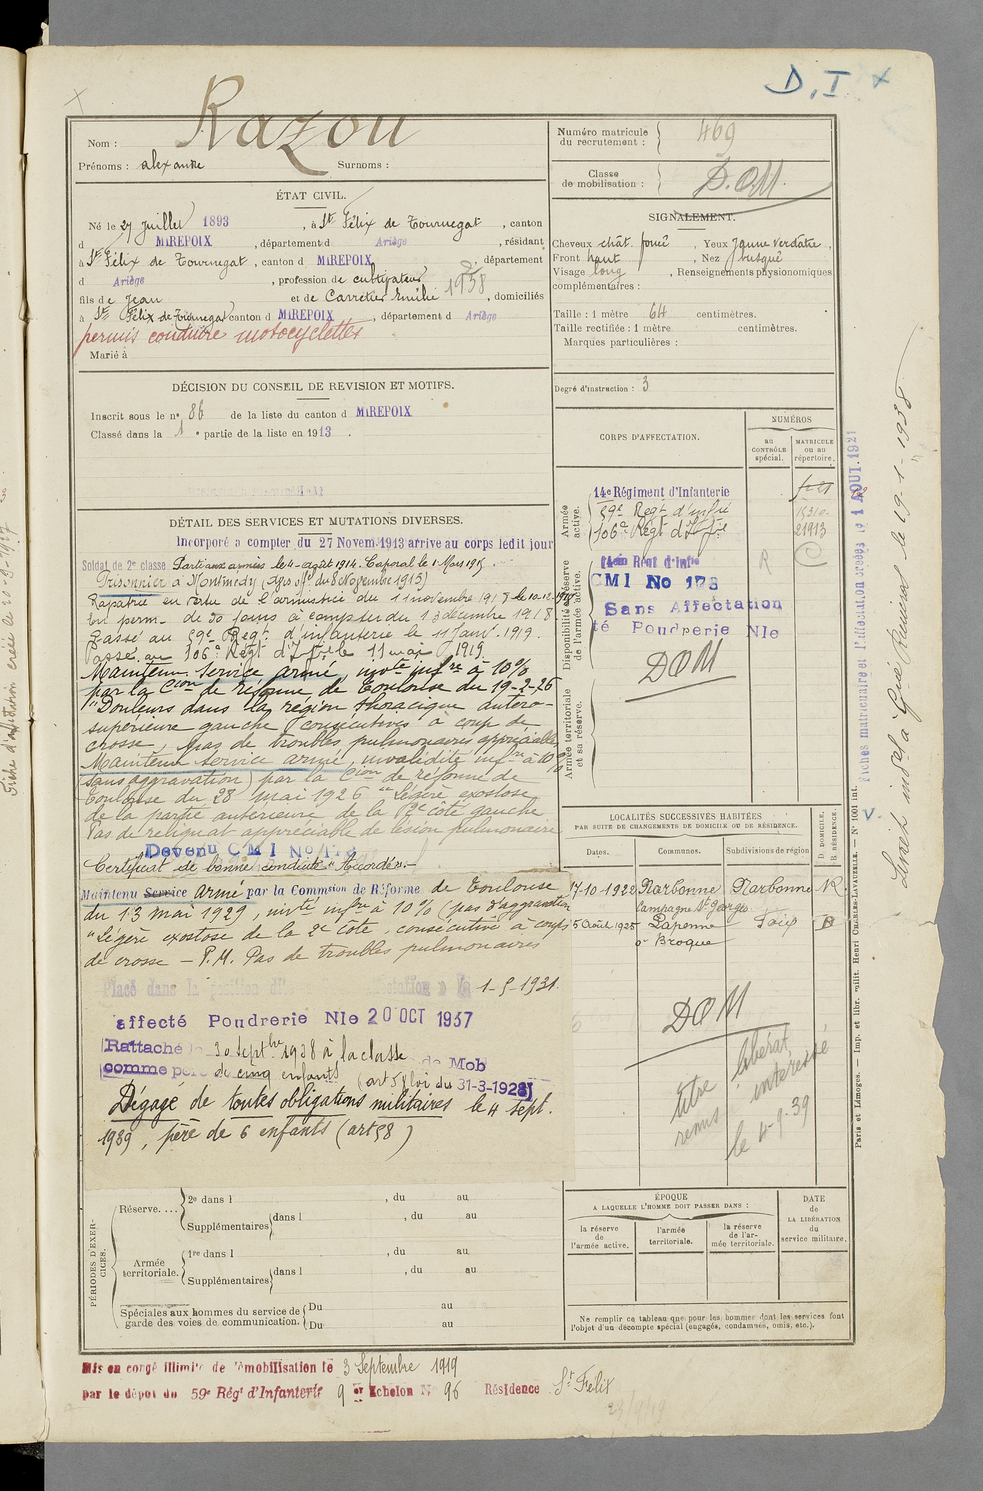 D. I
Razou
Nom :
Prénoms : alexandre Surnoms :
Numéro matricule du recrutement : 469
Classe de mobilisation : D.O.M.
ÉTAT CIVIL.
Né le 27 Juillet 1893, à St Félix de Tournegat, canton
d MIREPOIX, département d Ariège, résidant
à St Félix de Tournegat, canton d MIREPOIX, département
d Ariège, profession de cultivateur
fils de Jean et de Carretier Emilie 1938, domiciliés
à St Félix de Tournegat canton d MIREPOIX, département d Ariège
permis conduire motocyclettes
Marié à
SIGNALEMENT.
Cheveux chât. foncé, Yeux Jaune verdâtre,
Front haut, Nez busqué
Visage long, Renseignements physionomiques
complémentaires :
Taille : 1 mètre 64 centimètres.
Taille rectifiée : 1 mètre centimètres.
Marques particulières :
Degré d'instruction : 3
DÉCISION DU CONSEIL DE REVISION ET MOTIFS.
Inscrit sous le n° 86 de la liste du canton d MIREPOIX
Classé dans la 1 e partie de la liste en 1913.
DÉTAIL DES SERVICES ET MUTATIONS DIVERSES.
Incorporé à compter du 27 Novem. 1913 arrive au corps ledit jour
Soldat de 2e classe Parti aux armées le 4 août 1914. Caporal le 1 Mars 1915.
Prisonnier à Montmédy (Avis off. du 8 Novembre 1915)
Rapatrié en vertu de l'armistice du 11 novembre 1918 le 10.12.1918
En perm. de 30 jours à compter du 13 décembre 1918
Passé au 59e Regt. d'infanterie le 11 Janv. 1919.
Passé au 106e Régt d'Inf. le 11 mai 1919.
Maintenu service armé, invte infre à 10%
par la Cion de réforme de Toulouse du 19-2-26
"Douleurs dans la région thoracique antéro-
supérieure gauche consécutives à coup de
crosse, pas de troubles pulmonaires appréciables
Maintenu service armé, invalidité infre à 10%
sans aggravation par la Cion de réforme de
Toulouse du 28 mai 1926 "Légère exostose
de la partie antérieure de la 2e côte gauche
Pas de reliquat appréciable de lésion pulmonaire
Devenu CMI No
Certificat de bonne conduite "Accordé".-
Maintenu Service armé par la Commsion de Réforme de Toulouse
du 13 mai 1929, invté infre à 10% (pas d'aggravation
"Légère exostose de la 2e côte, consécutive à coups
de crosse - P.M. Pas de troubles pulmonaires
Placé dans la position dite affectation 1-5-1931.
affecté Poudrerie Nle 20 OCT 1937
Rattaché le 30 Septbre 1938 à la classe de Mob
comme père de cinq enfants (art 58 loi du 31-3-1928)
Dégagé de toutes obligations militaires le 4 sept.
1939, père de 6 enfants (art 58)
CORPS D'AFFECTATION.
NUMÉROS
AU CONTRÔLE spécial.
MATRICULE OU AU répertoire.
Armée active.
14e Régiment d'Infanterie
59e Regt d'infie
106e Régt d'Infie 21913
Disponibilité et réserve de l'armée active.
14ème Régt d'Infie R
CMI No 173
Sans Affectation
té Poudrerie Nle
DOM
Armée territoriale et sa réserve.
LOCALITÉS SUCCESSIVES HABITÉES
PAR SUITE DE CHANGEMENTS DE DOMICILE OU DE RÉSIDENCE.
Dates. Communes. Subdivisions de région D. DOMICILE. R. RÉSIDENCE.
17-10-1922 Narbonne Narbonne R.
Campagne St Georges
5 Août 1925 Lapenne Foix D
DOM
titre libérat
remis intéressé
le 4-9-39
PÉRIODES D'EXERCICES.
Réserve....
2e dans l , du au
Supplémentaires dans l , du au
Armée territoriale.
1re dans l , du au
Supplémentaires dans l , du au
Spéciales aux hommes du service de garde des voies de communication.
Du au
Du au
ÉPOQUE
A LAQUELLE L'HOMME DOIT PASSER DANS :
la réserve de l'armée active.
l'armée territoriale.
la réserve de l'armée territoriale.
DATE de LA LIBÉRATION du service militaire.
Ne remplir ce tableau que pour les hommes dont les services font
l'objet d'un décompte spécial (engagés, condamnés, omis, etc.).
Mis en congé illimité de démobilisation le 3 Septembre 1919
par le dépôt du 59e Régt d'Infanterie 9 er Echelon N° 96 Résidence St Félix
Fiches matriculaire et d'affectation créées le 1 AOUT. 1921
Paris et Limoges. — Imp. et libr. milit. Henri CHARLES-LAVAUZELLE. — N° 1001 int.